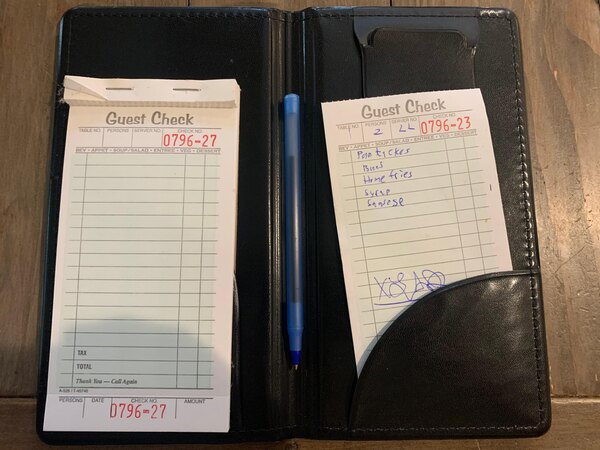 Guest Check
TABLE NO. PERSONS SERVER NO. CHECK NO.
0796-27
BEV - APPET - SOUP/SALAD - ENTREE - VEG - DESSERT
TAX
TOTAL
Thank You — Call Again
PERSONS DATE CHECK NO. AMOUNT
0796-27
Guest Check
TABLE NO. PERSONS SERVER NO. CHECK NO.
2 LL 0796-23
BEV - APPET - SOUP/SALAD - ENTREE - VEG - DESSERT
Home fries
Syrup